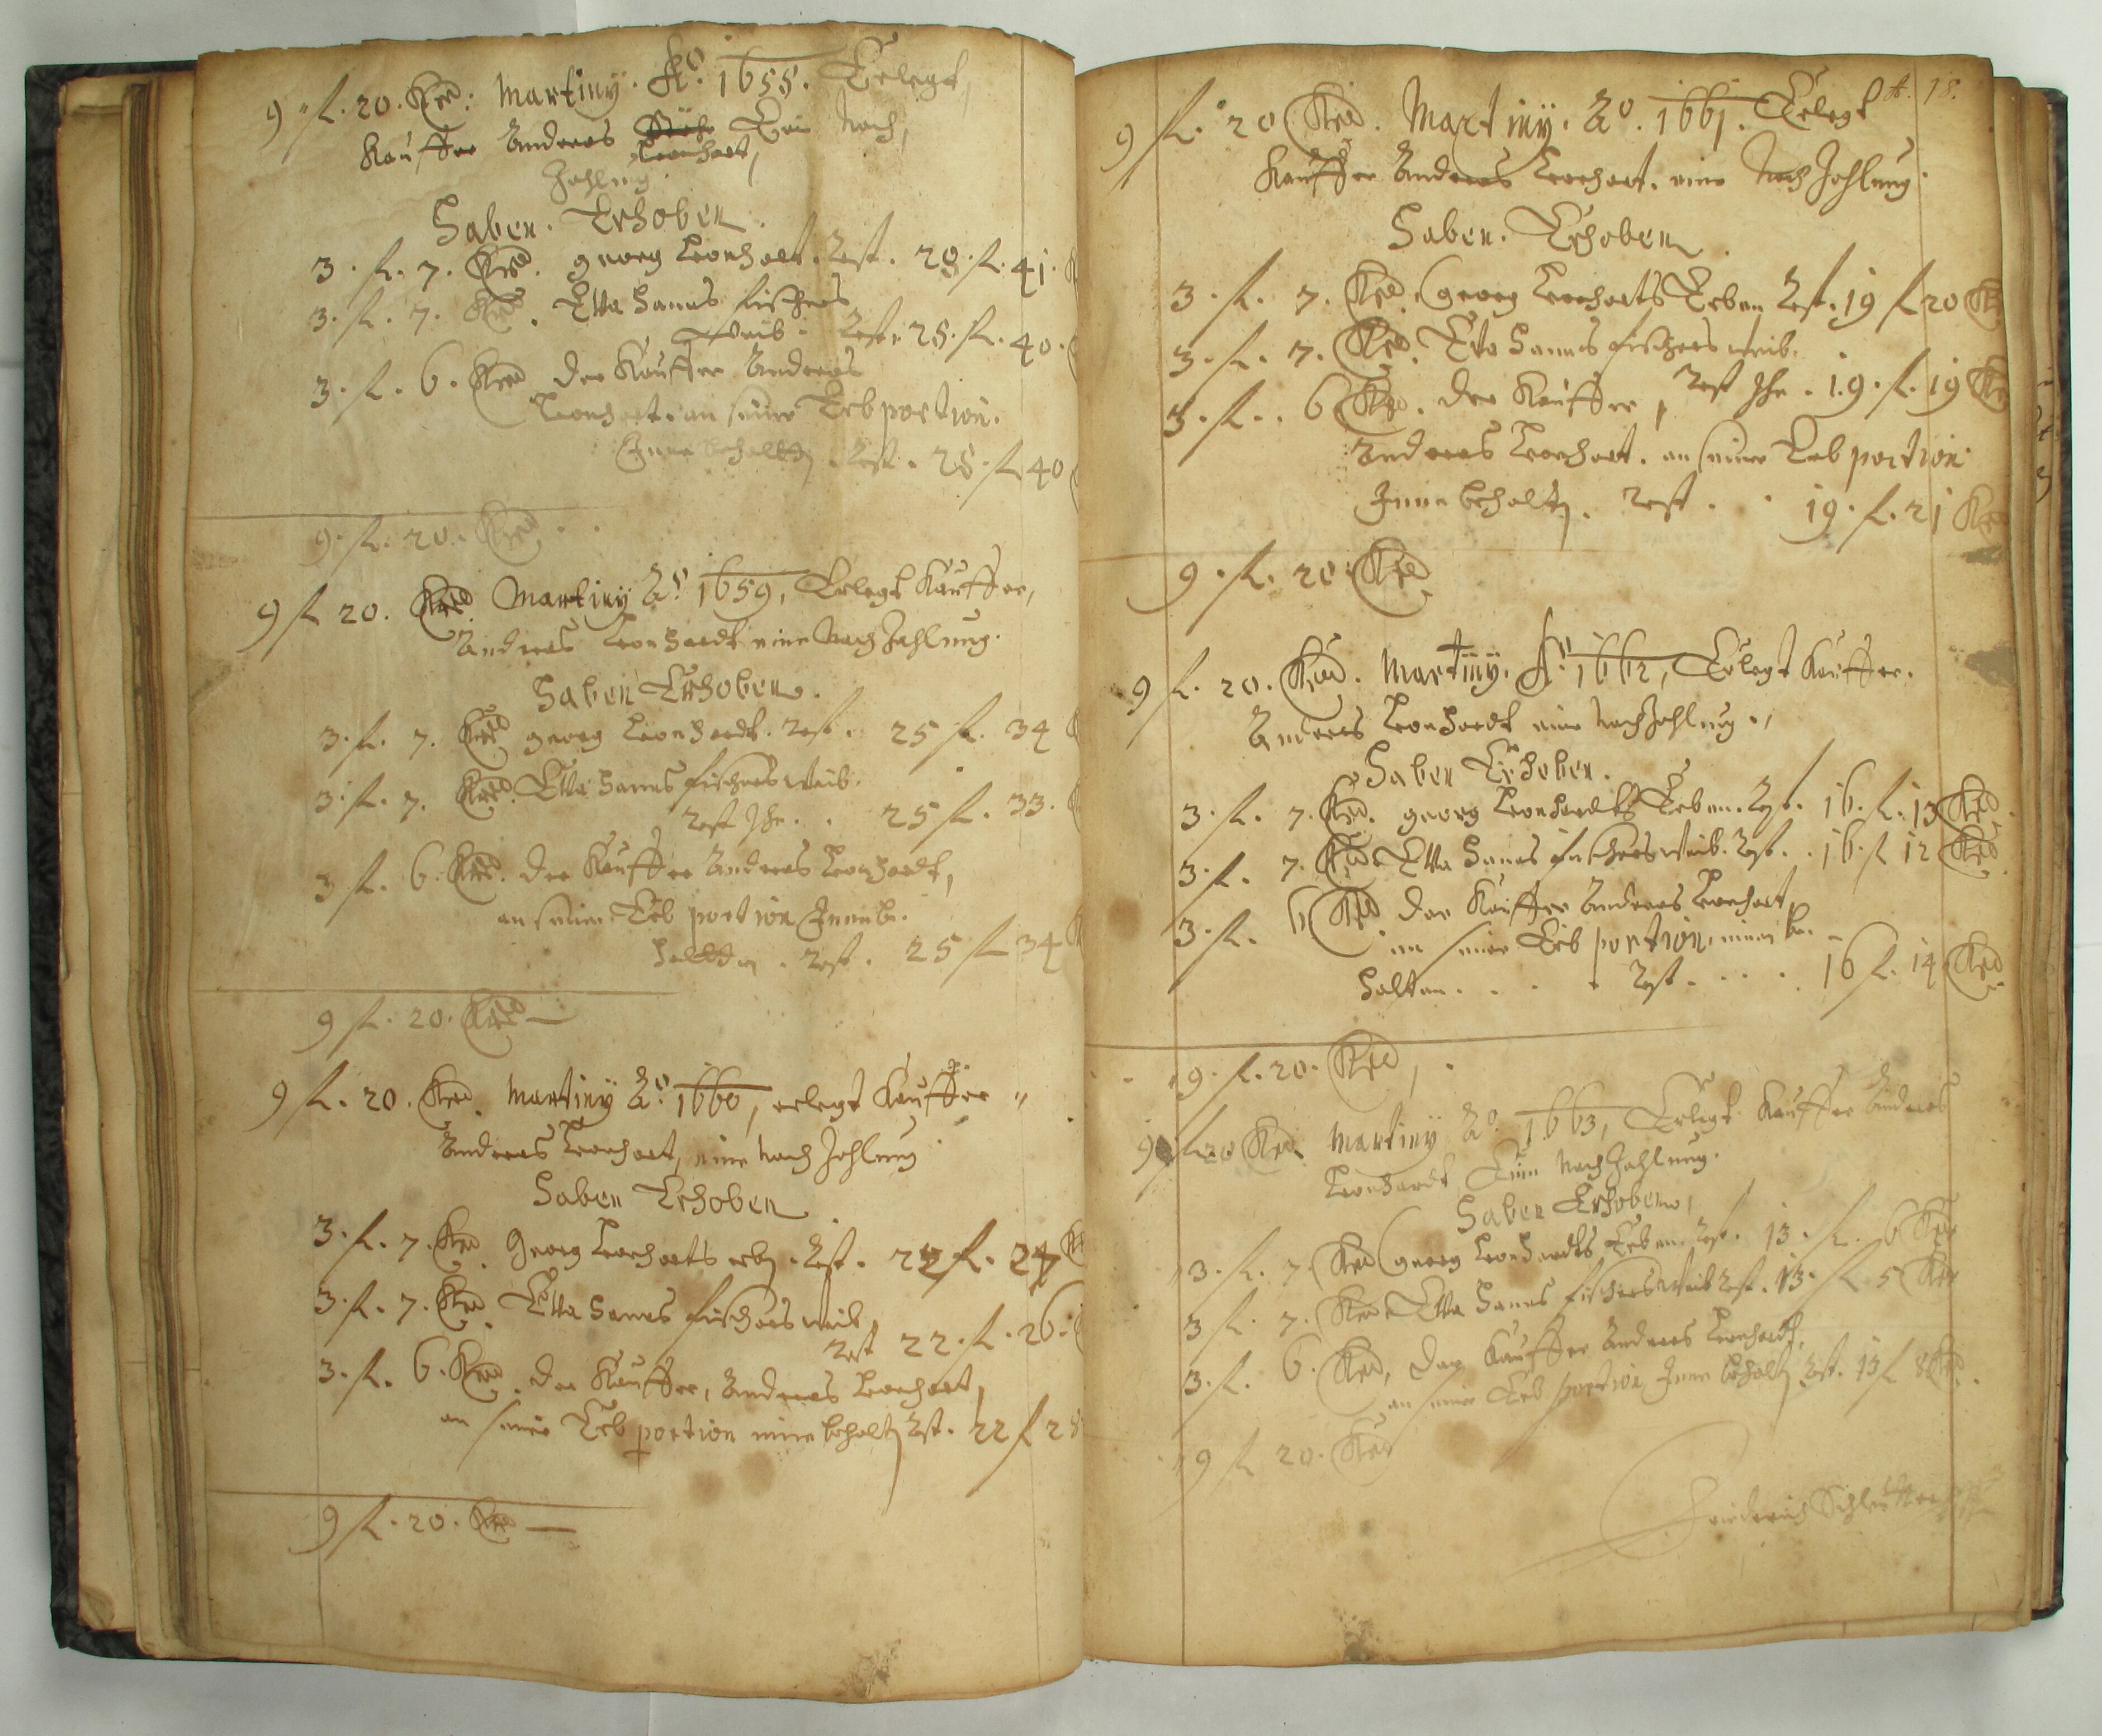 9 fl. 20. Kr: Martiny. Ao. 1658. Erlegt,
Kauffer Andreas Leonhart, Ein Nach,
Zahlung.
Haben. Erhoben.
3. fl. 7. Kr. georg Leonhart. Rest. 28. fl. 41.
3. fl. 7. Kr. Eva Hanns fischers
weib. Rest. 28. fl. 40.
3. fl. 6. Kr. der Kauffer Andreas
Leonhart. an seiner Erbportion.
Inne behaltten. Rest. 28. fl. 40
9. fl. 20. Kr.
9 fl 20. Kr. Martiny Ao. 1659, Erlegt Kauffer,
Andreas Leonhardt eine Nach Zahlung.
Haben Erhoben.
3. fl. 7. Kr georg Leonhardt. Rest. 25 fl. 34
3. fl. 7. Kr. Eva Hanns fischers weib.
Rest Ihr. 25 fl. 33.
3 fl. 6. Kr. der Kauffer Andreas Leonhardt,
an seiner Erb portion Innebe-
haltten. Rest. 25 fl 34
9 fl. 20. Kr
9 fl. 20. Kr. Martiny Ao. 1660, erlegt Kauffer
Andreas Leonhart, eine Nach Zahlung
Haben Erhoben
3. fl. 7. Kr. Georg Leonharts erben. Rest. 22 fl. 27
3. fl. 7. Kr. Eva Hanns fischers weib,
Rest 22. fl. 26.
3. fl. 6. Kr. der Kauffer, Andreas Leonhart,
an seiner Erb portion inne behalten Rest. 22 fl 28
9 fl. 20. Kr
18.
9 fl. 20 Kr. Martiny. Ao. 1661. Erlegt
Kauffer Andreas Leonhart. eine Nach Zahlung.
Haben. Erhoben.
3. fl. 7. Kr. Georg Leonharts Erben Rest. 19 fl 20 Kr
3. fl. 7. Kr. Eva Hanns fischers weib.
Rest Ihr. 19. fl. 19 Kr
3. fl. 6 Kr. der Kauffer,
Andreas Leonhart. an seiner Erb portion
Inne behalten. Rest. 19. fl. 21 Kr
9. fl. 20 Kr
9 fl. 20. Kr. Martiny. Ao. 1662, Erlegt Kauffer.
Andreas Leonhardt eine Nachzahlung.
Haben Erhoben.
3. fl. 7. Kr. georg Leonhardts Erben. Rest. 16. fl. 13 Kr.
3. fl. 7. Kr Eva Hanns fischers weib. Rest. 16. fl 12 Kr
3. fl. 6 Kr. der Kauffer Andreas Leonhart
an seiner Erb portion, innen be-
halten. Rest. 16 fl. 14 Kr.
9. fl. 20. Kr,
9 fl 20 Kr. Martiny Ao. 1663, Erlegt Kauffer Andreas
Leonhardt Eine Nach Zahlung.
Haben Erhoben,
3. fl. 7. Kr Georg Leonhardts Erben. Rest. 13. fl. 6 Kr
3 fl. 7. Kr Eva Hanns fischers Weib Rest. 13. fl 5 Kr
3. fl. 6. Kr, der Kauffer Andreas Leonhardt,
an seiner Erb portion Inne behalten Rest. 13 fl 8 Kr.
9 fl 20. Kr
Friederich